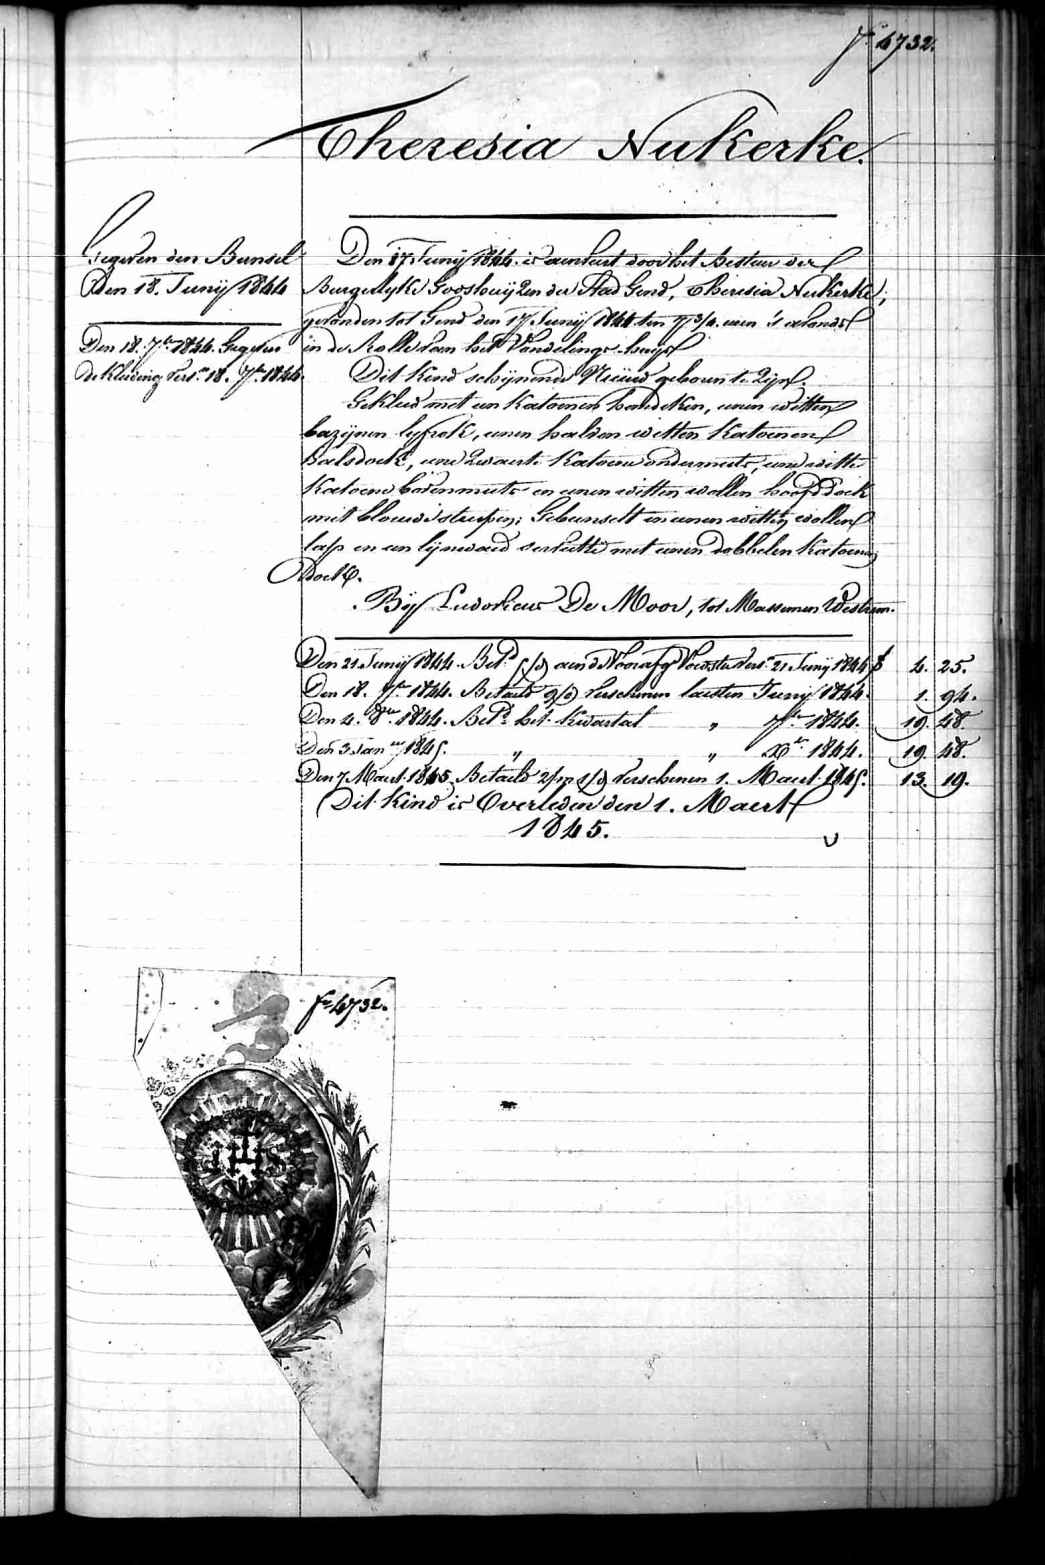 fº 4732.
Theresia Nukerke.
Gegeven den Bunsel
Den 18. Junij 1844
Den 18. 7bre 1844. Gegeven
de Kleeding Vers.n 18. 7bre 1844.
Den 17 Junij 1844. is aenveert door het Bestuer der
Burgerlyke Godshuijzen der Stad Gend, Theresia Nukerke,
gevonden tot Gend den 17 Junij 1844 ten 9 3/4. uren 's avonds
in de Rolle van het Vondelings-huijs
Dit Kind schijnende Nieuw geboren te Zijn.
Gekleed met een Katoenen hemdeken, eenen witten
bazijnen lyfrok, eenen halven witten Katoenen
halsdoek, eene zwarte Katoene ondermuts, eene witte
Katoene bovenmuts en eenen witten wollen hoofddoek
met blouw strepen; Gebunselt in eenen witten wollen
lap en een lijnwaed servette met eenen dobbelen Katoenen
doek.
Bij Ludovicus De Moor, tot Massemen Westrem.
Den 21 Junij 1844. Bet.d 5/d aen de Voorafg. Voedster Vers.n 21 Junij 1844 f 4. 25.
Den 18. 7bre 1844. Betaeld 9/d Verschenen laesten Junij 1844. 1. 94.
Den 4. 8bre 1844. Bet.d het Kwartael " 7bre 1844. 19. 48.
Den 3 Janry 1845. " " Xbre 1844. 19. 48.
Den 7 Maert 1845. Betaeld 2/m 1/d Verschenen 1. Maert 1845. 13. 19.
Dit Kind is Overleden den 1. Maert
1845.
fº 4732.
IHS